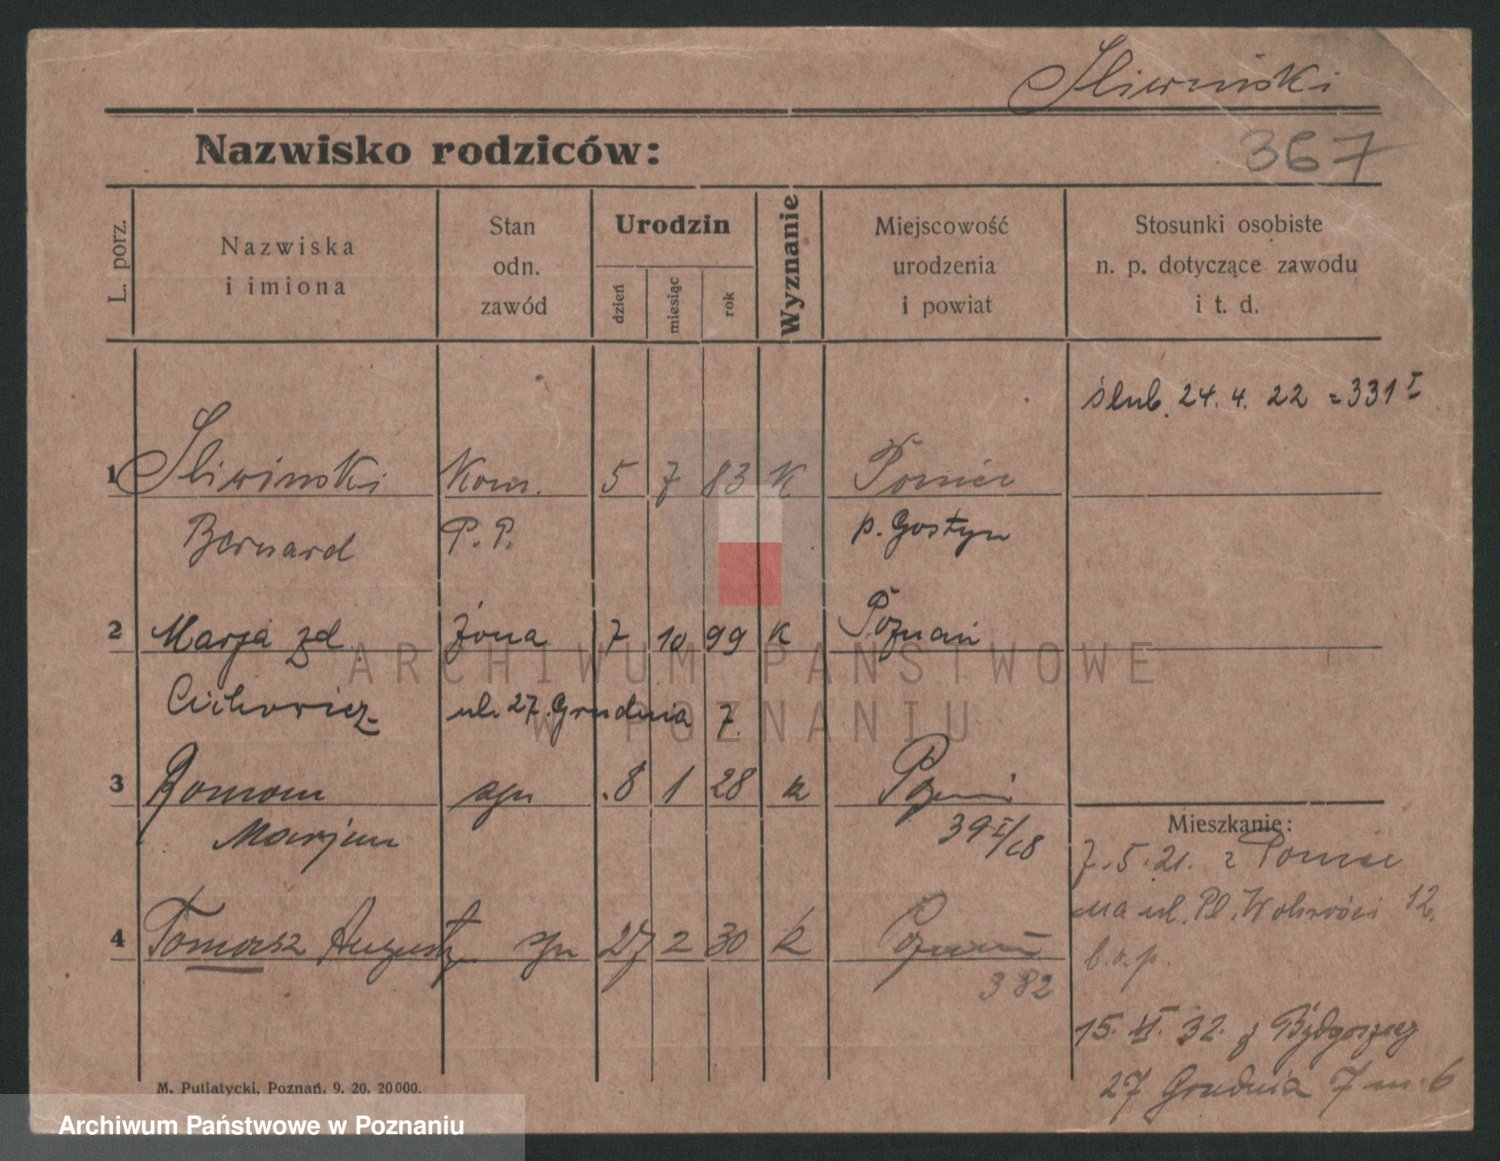 Śliwiński
Nazwisko rodziców:
367
L. porz.
Nazwiska
i imiona
Stan
odn.
zawód
Urodzin
dzień
miesiąc
rok
Wyznanie
Miejscowość
urodzenia
i powiat
Stosunki osobiste
n. p. dotyczące zawodu
i t. d.
ślub. 24. 4. 22 = 331 I
1 Śliwiński Kom. 5 7 83 K Poniec
Bernard P. P. p. Gostyn
2 Marja zd żona 7 10 99 K Poznań
Cichowicz ul. 27. Grudnia 7.
3 Roman syn 8 1 28 k Poznań
Marjan 39 I/28
Mieszkanie:
7. 5. 21. z Poniec
na ul. Pl. Wolności 12.
b. o. p.
4 Tomasz August syn 27 2 30 k Poznań
382
15. II. 32. z Bydgoszczy
27 Grudnia 7 m. 6
M. Putiatycki, Poznań. 9. 20. 20000.
ARCHIWUM PAŃSTWOWE
W POZNANIU
Archiwum Państwowe w Poznaniu